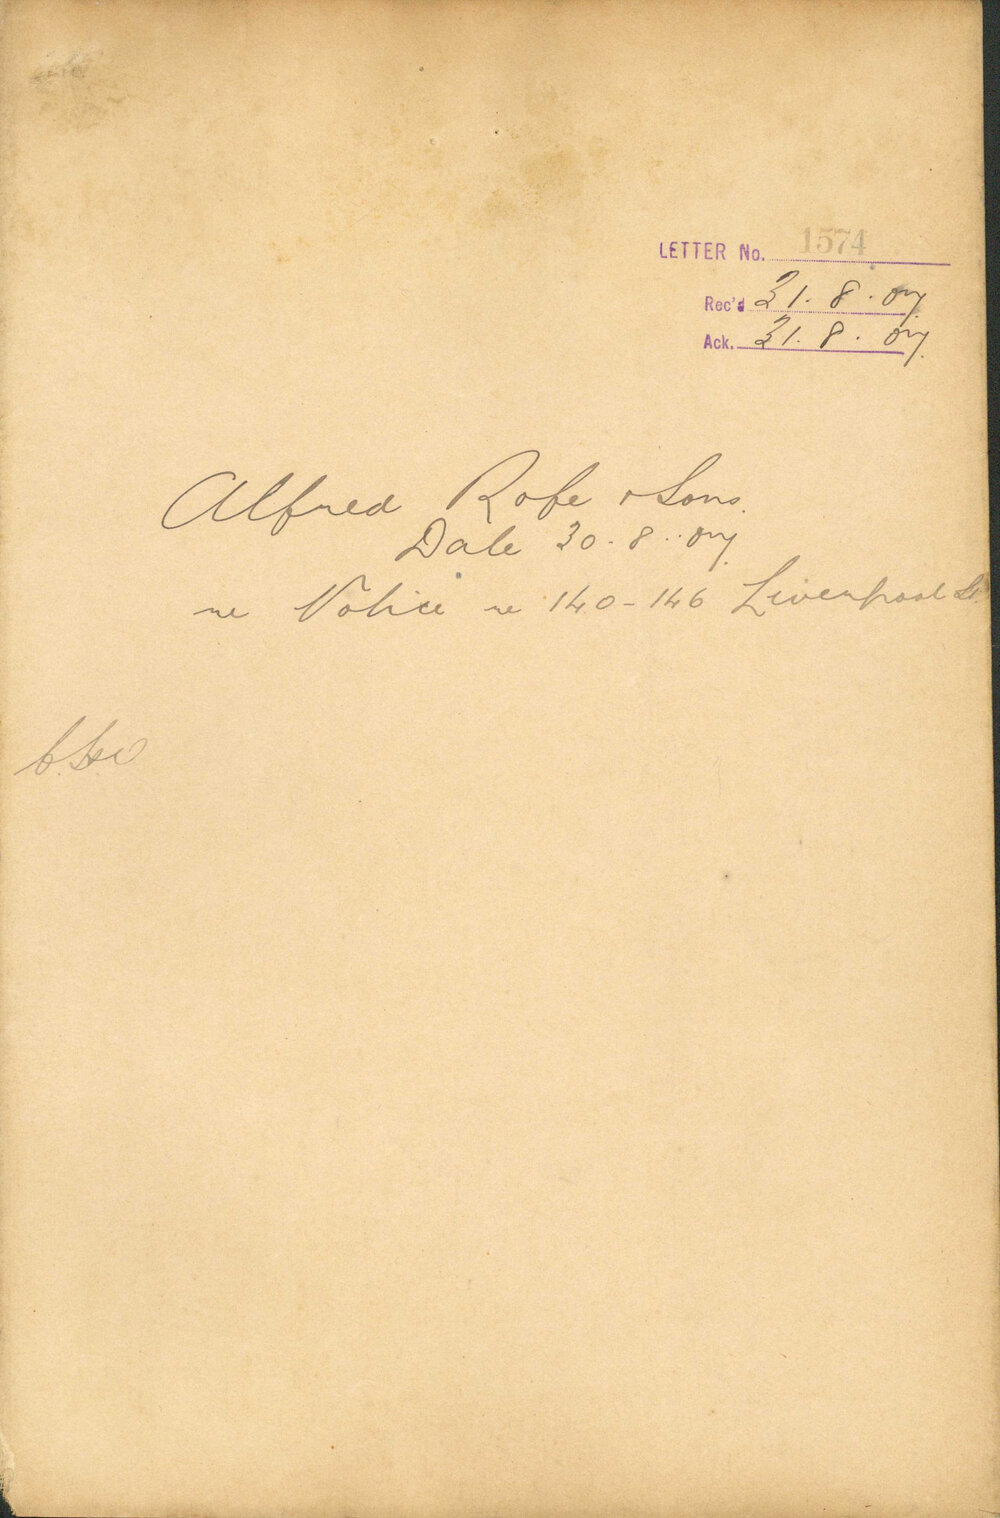 LETTER No. 1574
Rec'd 31. 8. 07.
Ack. 31. 8. 07.
Alfred Rofe & Sons.
Date 30. 8. 07
re Notice re 140-146 Liverpool St.